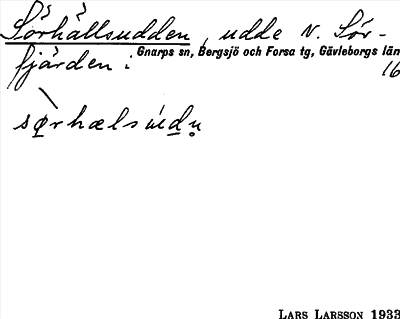 Sörhällsudden, udde N. Sör-
fjärden i Gnarps sn, Bergsjö och Forsa tg, Gävleborgs län
16
sø̀rhælsúdn̥
LARS LARSSON 1933